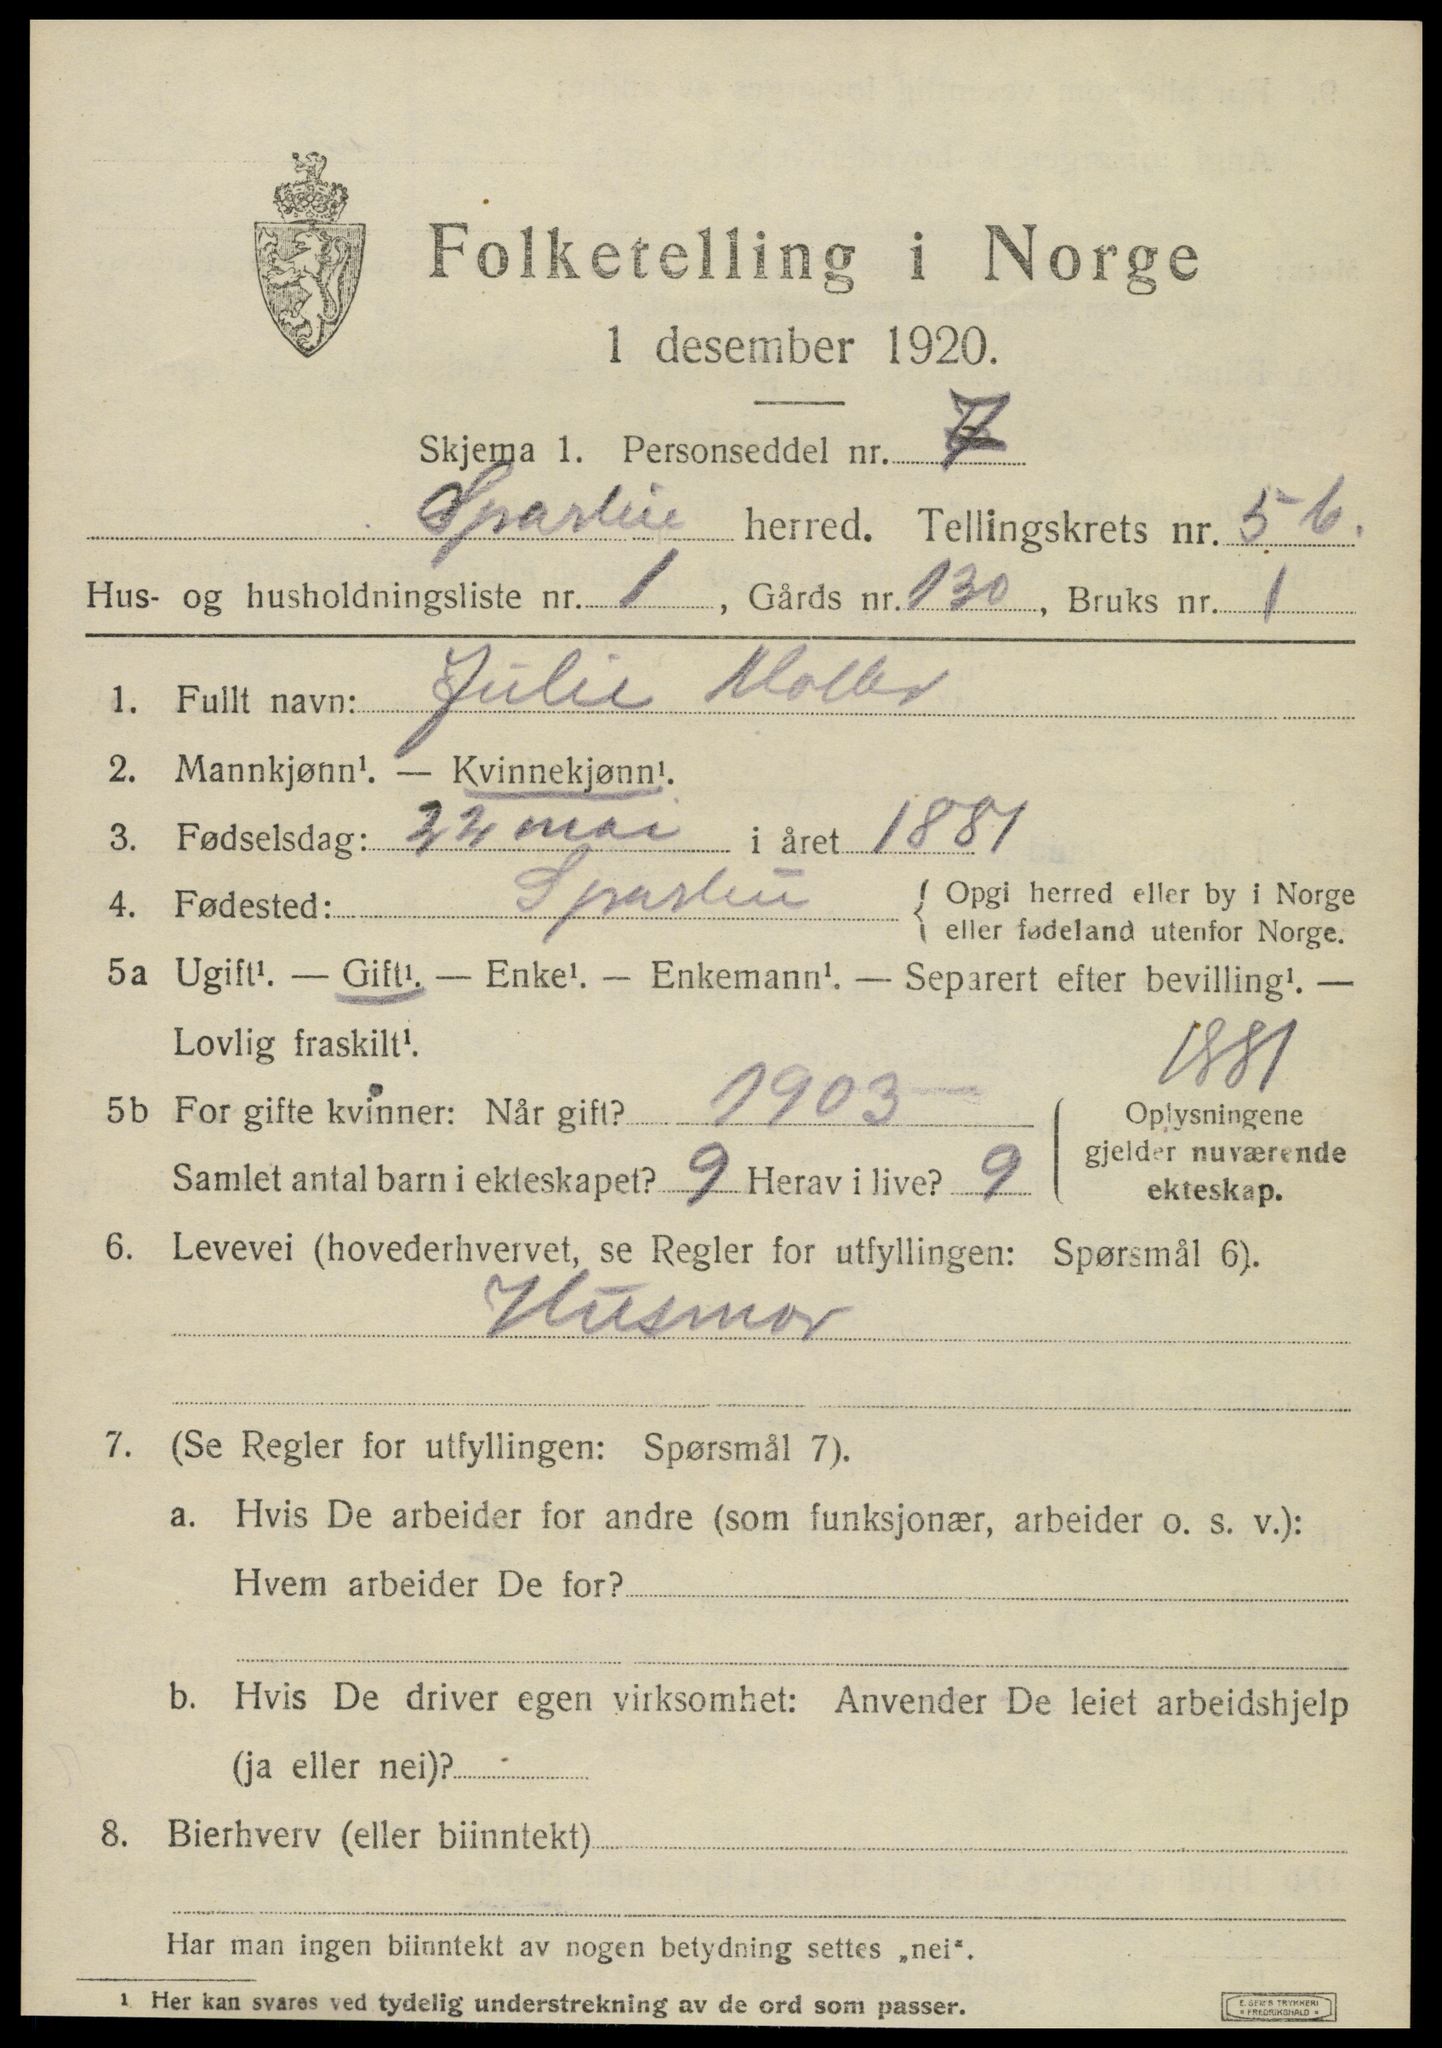 Folketelling i Norge
1 desember 1920.
Skjema 1. Personseddel nr. 7
Sparbu herred. Tellingskrets nr. 5 b.
Hus- og husholdningsliste nr. 1, Gårds nr. 130, Bruks nr. 1
1. Fullt navn: Julie
2. Mannkjønn¹. — Kvinnekjønn¹.
3. Fødselsdag: 22 mai i året 1881
4. Fødested: Sparbu { Opgi herred eller by i Norge
eller fødeland utenfor Norge.
5a Ugift¹. — Gift¹. — Enke¹. — Enkemann¹. — Separert efter bevilling¹. —
Lovlig fraskilt¹.
1881
5b For gifte kvinner: Når gift? 1903
Samlet antal barn i ekteskapet? 9 Herav i live? 9
Oplysningene
gjelder nuværende
ekteskap.
6. Levevei (hovederhvervet, se Regler for utfyllingen: Spørsmål 6).
Husmor
7. (Se Regler for utfyllingen: Spørsmål 7).
a. Hvis De arbeider for andre (som funksjonær, arbeider o. s. v.):
Hvem arbeider De for?
b. Hvis De driver egen virksomhet: Anvender De leiet arbeidshjelp
(ja eller nei)?
8. Bierhverv (eller biinntekt)
Har man ingen biinntekt av nogen betydning settes „nei“.
1 Her kan svares ved tydelig understrekning av de ord som passer.
E. SEM'S TRYKKERI
FREDRIKSHALD